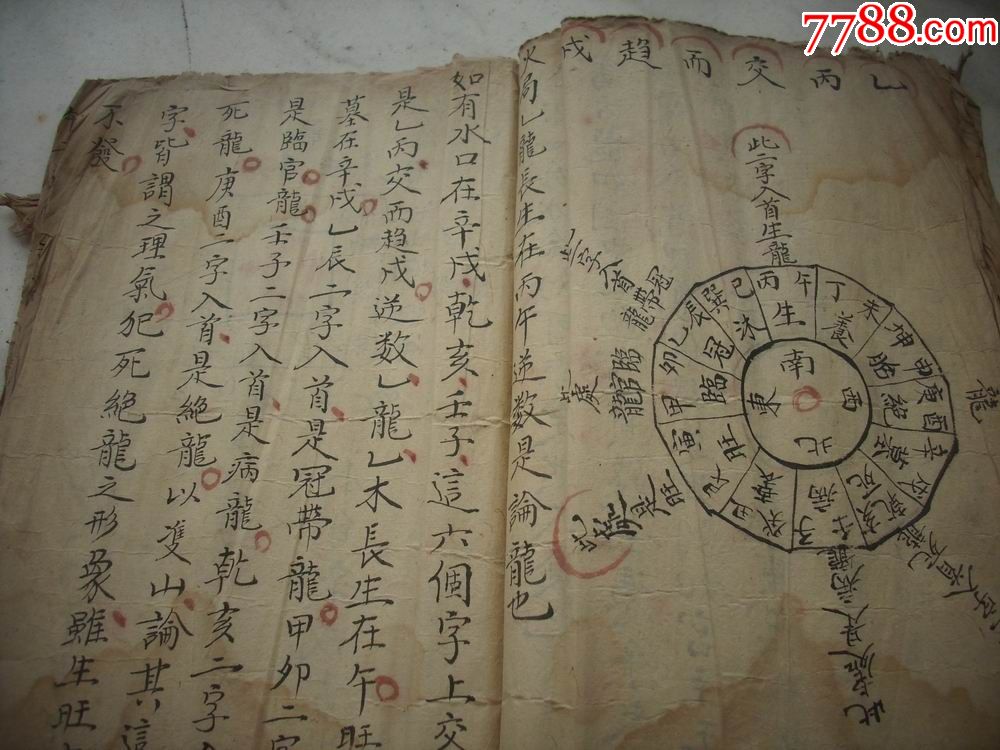 7788.com
乙丙交而趋戌
此二字入首生龍
火局乙龍長生在丙午逆数是論龍也
此二字入首冠帶龍
臨官龍
龍
午丙巳巽辰乙卯甲寅
丁未坤申庚酉辛
生沐冠臨旺
養胎絕墓死病衰
南東北西
如有水口在辛戌乾亥壬子這六個字上交
是乙丙交而趋戌逆数乙龍乙木長生在午旺
墓在辛戌乙辰二字入首是冠帶龍甲卯二
是臨官龍壬子二字入首是病龍乾亥二字
死龍庚酉二字入首是絕龍以隻山論其這
字皆謂之理氣犯死絕龍之形象雖生旺
不發